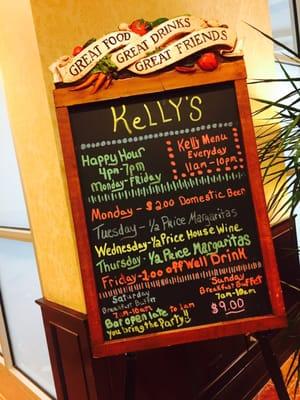 GREAT FOOD
GREAT DRINKS
GREAT FRIENDS
KELLY'S
Happy Hour
4pm-7pm
Monday-Friday
Kelly's Menu
Everyday
11am-10pm
Monday - $2.00 Domestic Beer
Tuesday - ½ Price Margaritas
Wednesday - ½ Price House Wine
Thursday - ½ Price Margaritas
Friday - 1.00 off Well Drink
Saturday
Breakfast Buffet
7am-10am
Sunday
Breakfast Buffet
7am-10am
$9.00
Bar open late to 1am
you bring the Party!!